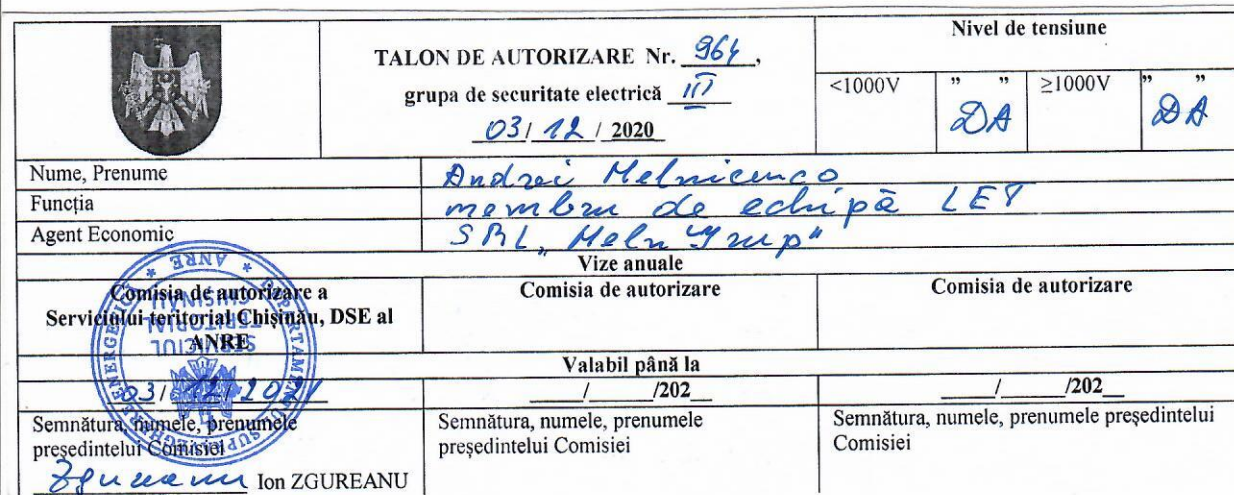 TALON DE AUTORIZARE Nr. 964,
grupa de securitate electrică III
03/ 12 / 2020
Nivel de tensiune
<1000V
" "
DA
≥1000V
" "
DA
Nume, Prenume
Andrei Melnicenco
Funcția
membru de echipă LET
Agent Economic
SRL „Meln Grup"
Vize anuale
Comisia de autorizare a
Serviciului teritorial Chișinău, DSE al
ANRE
Comisia de autorizare
Comisia de autorizare
* ANRE *
DEPARTAMENTUL SUPRAVEGHERE ENERGETICĂ
SERVICIUL
TERITORIAL
CHIȘINĂU
Valabil până la
03/ 12/2021
____/____/202__
____/____/202__
Semnătura, numele, prenumele
președintelui Comisiei
Zgureanu Ion ZGUREANU
Semnătura, numele, prenumele
președintelui Comisiei
Semnătura, numele, prenumele președintelui
Comisiei